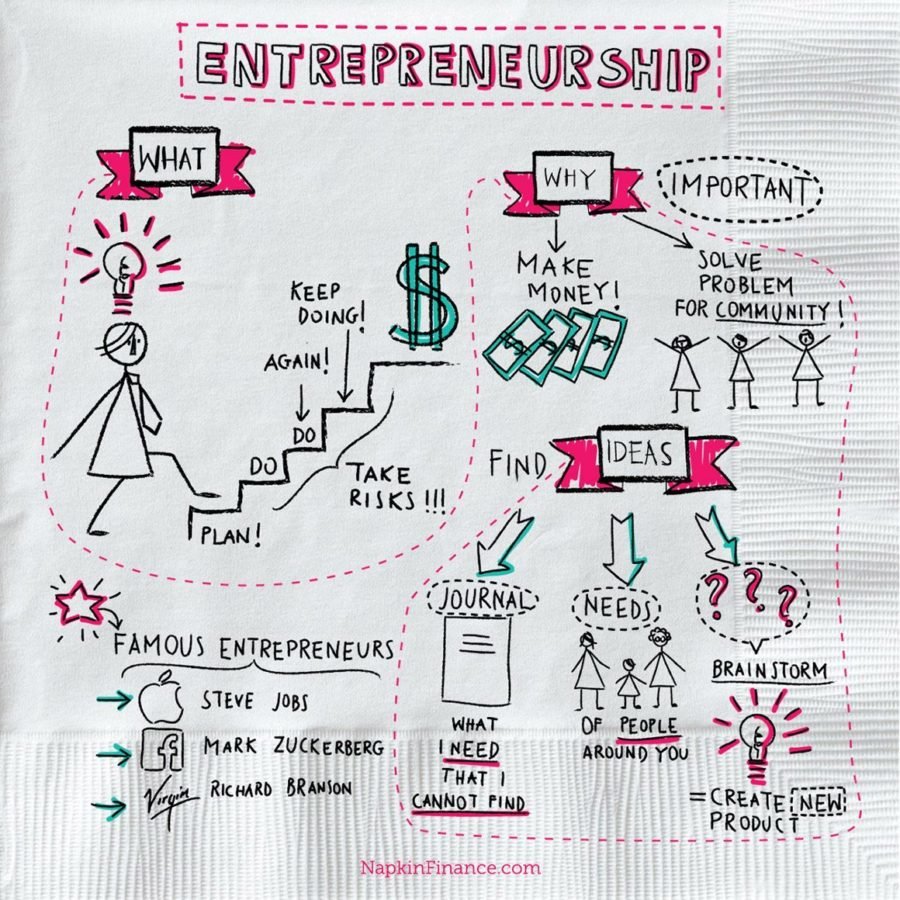 ENTREPRENEURSHIP
WHAT
KEEP
DOING!
AGAIN!
DO
DO
PLAN!
TAKE
RISKS!!!
WHY
IMPORTANT
MAKE
MONEY!
SOLVE
PROBLEM
FOR COMMUNITY!
FIND IDEAS
JOURNAL
WHAT
I NEED
THAT I
CANNOT FIND
NEEDS
OF PEOPLE
AROUND YOU
? ? ?
BRAINSTORM
= CREATE NEW
PRODUCT
FAMOUS ENTREPRENEURS
STEVE JOBS
f MARK ZUCKERBERG
Virgin RICHARD BRANSON
NapkinFinance.com